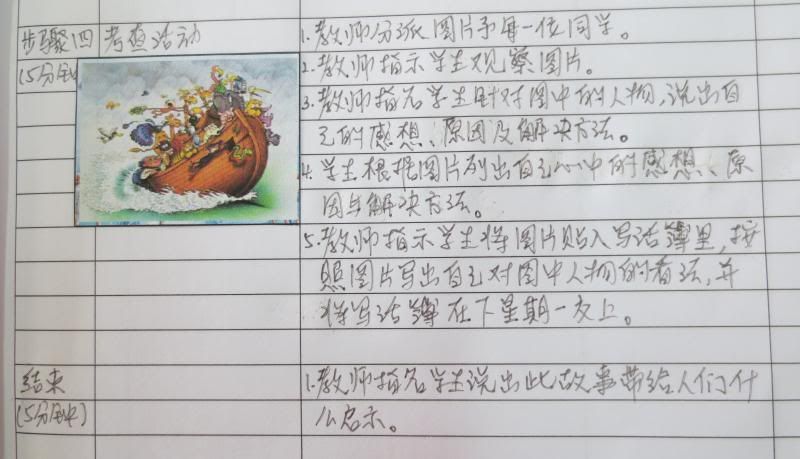 步骤四 考查活动 1.教师分派图片予每一位同学。
(5分钟) 2.教师指示学生观察图片。
3.教师指名学生针对图中的人物,说出自
己的感想、原因及解决方法。
4.学生根据图片列出自己心中的感想、原
因与解决方法。
5.教师指示学生将图片贴入写话簿里,按
照图片写出自己对图中人物的看法,并
将写话簿在下星期一交上。
结束 1.教师指名学生说出此故事带给人们什
(5分钟) 么启示。